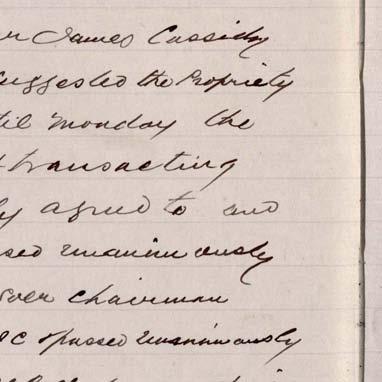 James Cassidy
suggested the Propriety
til Monday the
transacting
agreed to and
sed unanimously
chairman
passed unanimously